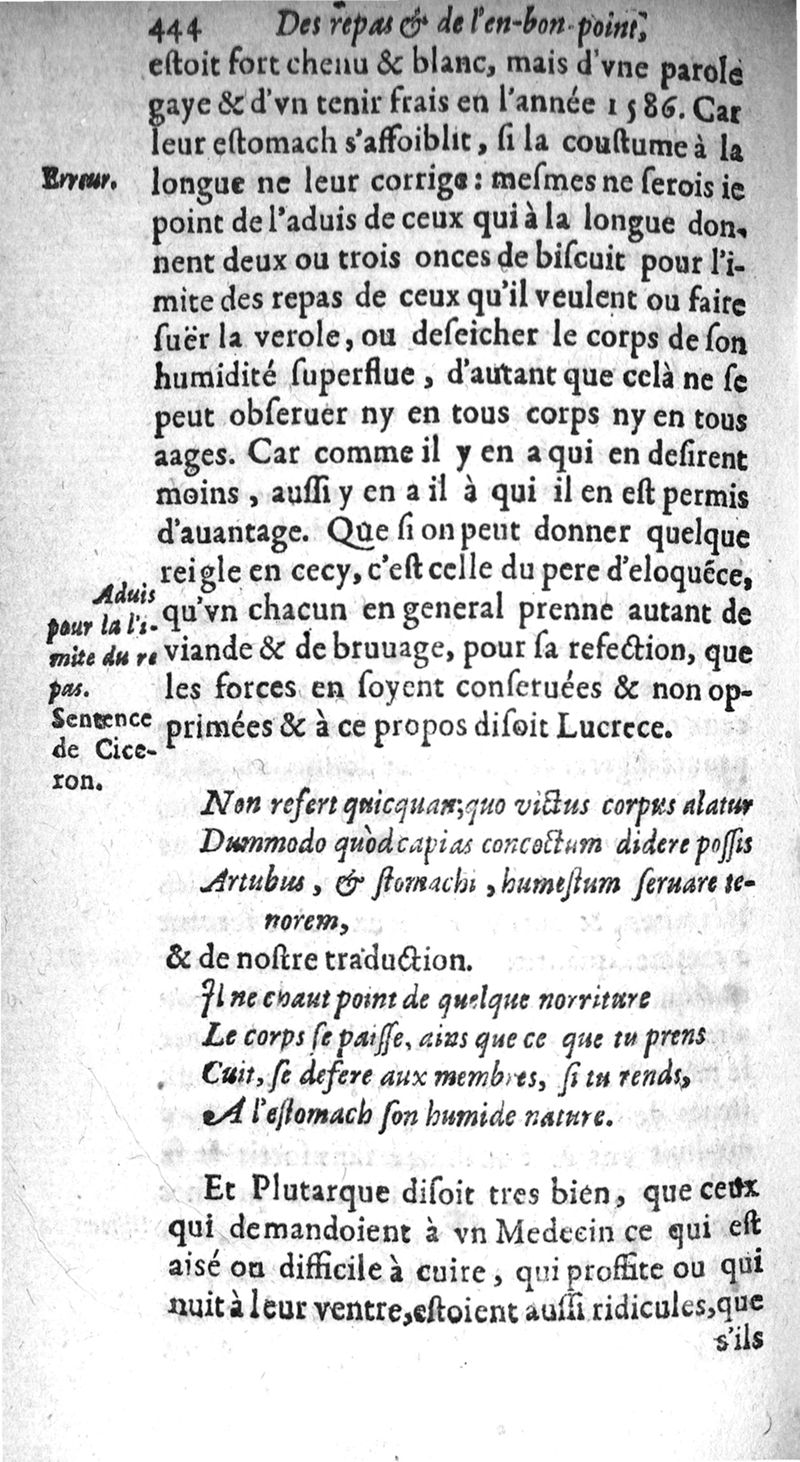 444 Des repas & de l'en-bon-point,
eſtoit fort chenu & blanc, mais d'vne parole
gaye & d'vn tenir frais en l'année 1586. Car
leur eſtomach s'affoiblit, ſi la couſtume à la
Erreur.
longue ne leur corrige: meſmes ne ſerois ie
point de l'aduis de ceux qui à la longue don-
nent deux ou trois onces de biſcuit pour l'i-
mite des repas de ceux qu'il veulent ou faire
ſuër la verole, ou deſeicher le corps de ſon
humidité ſuperflue, d'autant que celà ne ſe
peut obſeruer ny en tous corps ny en tous
aages. Car comme il y en a qui en deſirent
moins, auſſi y en a il à qui il en eſt permis
d'auantage. Que ſi on peut donner quelque
reigle en cecy, c'eſt celle du pere d'eloquéce,
Aduis
pour la l'i-
mite du re
pas.
Sentence
de Cice-
ron.
qu'vn chacun en general prenne autant de
viande & de bruuage, pour ſa refection, que
les forces en ſoyent conſeruées & non op-
primées & à ce propos diſoit Lucrece.
Non refert quicquam, quo victus corpus alatur
Dummodo quòd capias concoctum didere poſſis
Artubus, & ſtomachi, humeſtum ſeruare te-
norem,
& de noſtre traduction.
Il ne chaut point de quelque norriture
Le corps ſe paiſſe, ains que ce que tu prens
Cuit, ſe defere aux membres, ſi tu rends,
A l'eſtomach ſon humide nature.
Et Plutarque diſoit tres bien, que ceux
qui demandoient à vn Medecin ce qui eſt
aisé ou difficile à cuire, qui proffite ou qui
nuit à leur ventre, eſtoient auſſi ridicules, que
s'ils